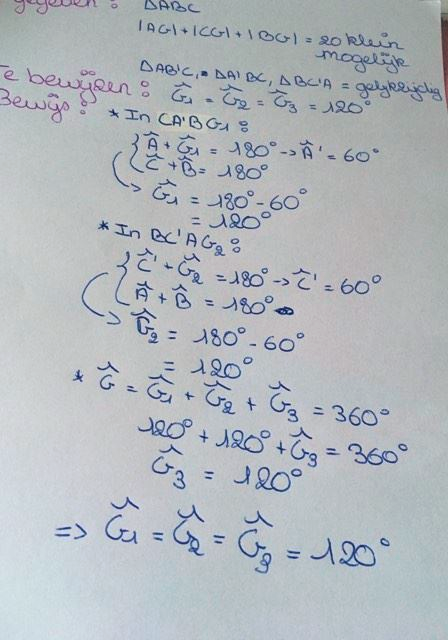 gegeven: ΔABC
|AG|+|CG|+|BG| = zo klein
mogelijk
ΔAB'C, ΔA'BC, ΔBC'A = gelijkzijdig
Te bewijzen: Ĝ1 = Ĝ2 = Ĝ3 = 120°
Bewijs:
* In CA'BG1:
Â + Ĝ1 = 180° → Â' = 60°
Ĉ + B̂ = 180°
Ĝ1 = 180° - 60°
= 120°
* In BC'AG2:
Ĉ' + Ĝ2 = 180° → Ĉ' = 60°
Â + B̂ = 180°
Ĝ2 = 180° - 60°
= 120°
* Ĝ = Ĝ1 + Ĝ2 + Ĝ3 = 360°
120° + 120° + Ĝ3 = 360°
Ĝ3 = 120°
=> Ĝ1 = Ĝ2 = Ĝ3 = 120°